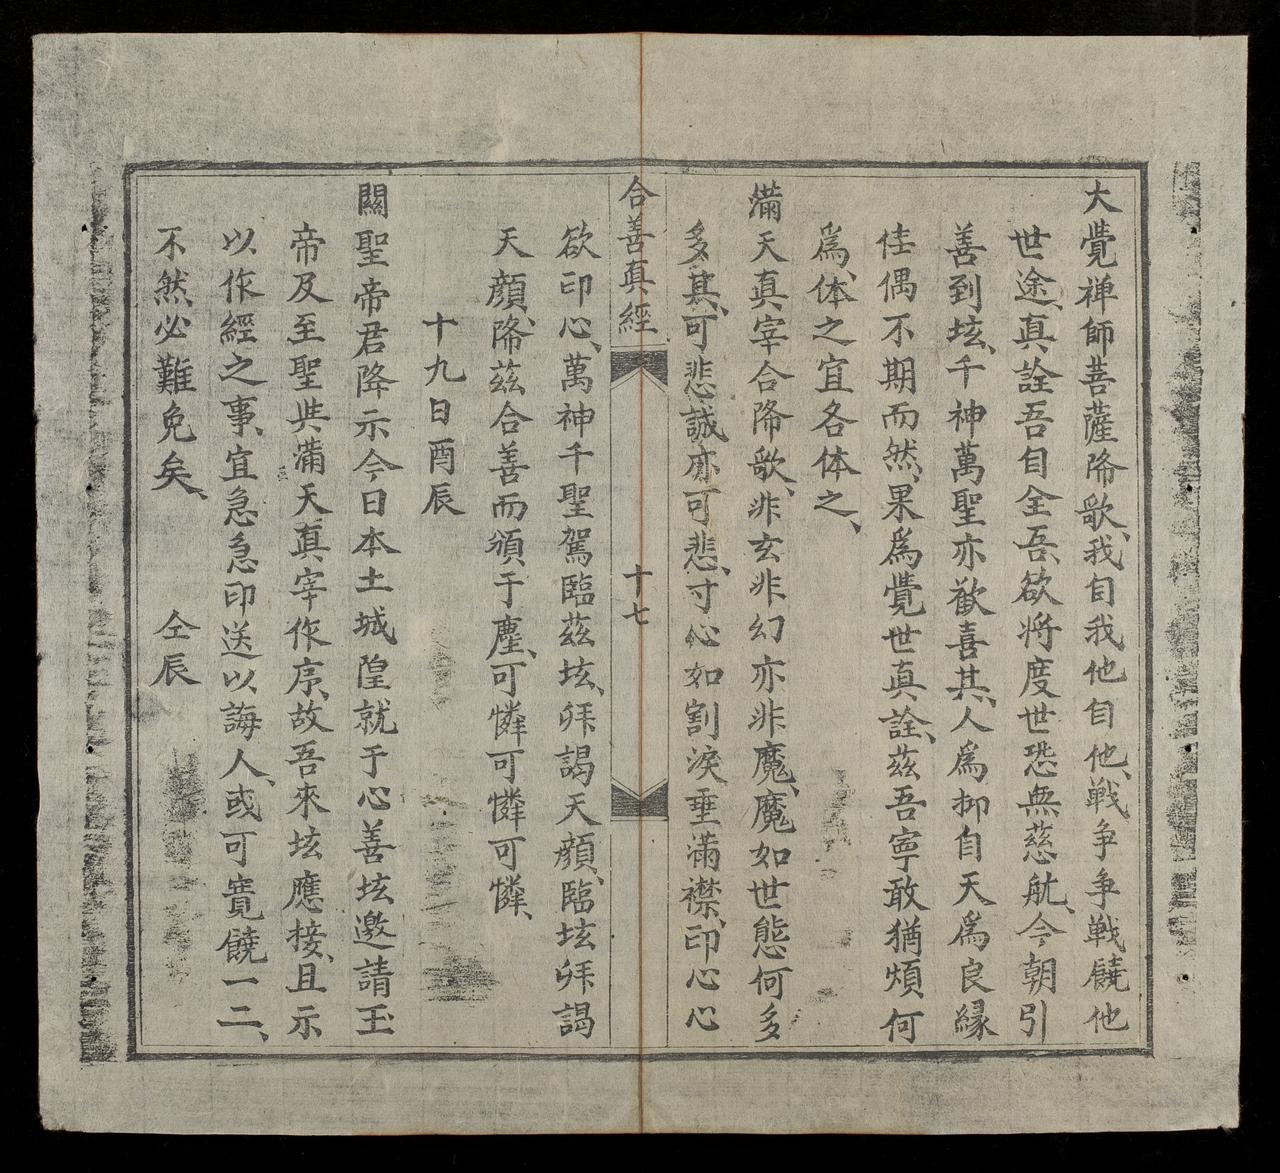 大覺禅師菩薩降歌、我自我他自他、戰争争戰饒他
世途、真詮吾自全吾、欲将度世恐無慈航、今朝引
善到坛、千神萬聖亦歡喜其、人為抑自天為良縁
佳偶不期而然、果爲覺世真詮、茲吾寧敢猶煩何
爲、体之宜各体之、
滿天真宰合降歌、非玄非幻亦非魔、魔如世態何多
多、其可悲誠亦可悲、寸心如割淚垂滿襟、印心心
合善真經 十七
欲印心、萬神千聖駕臨茲坛、拜謁天顔、臨坛拜謁
天顔、降茲合善而頒于塵、可憐可憐可憐、
十九日酉辰
關聖帝君降示今日本土城隍就于心善坛邀請玉
帝及至聖與滿天真宰作序、故吾來坛應接、且示
以作經之事、宜急急印送以誨人、或可寛饒一二、
不然、必難免矣、 仝辰